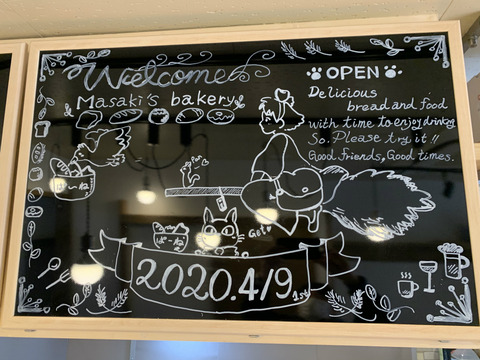 Welcome
Masaki's bakery
OPEN
Delicious
bread and food
with time to enjoy drinking
So. Please try it!!
Good friends, Good times.
Get
2020.4/9.1st